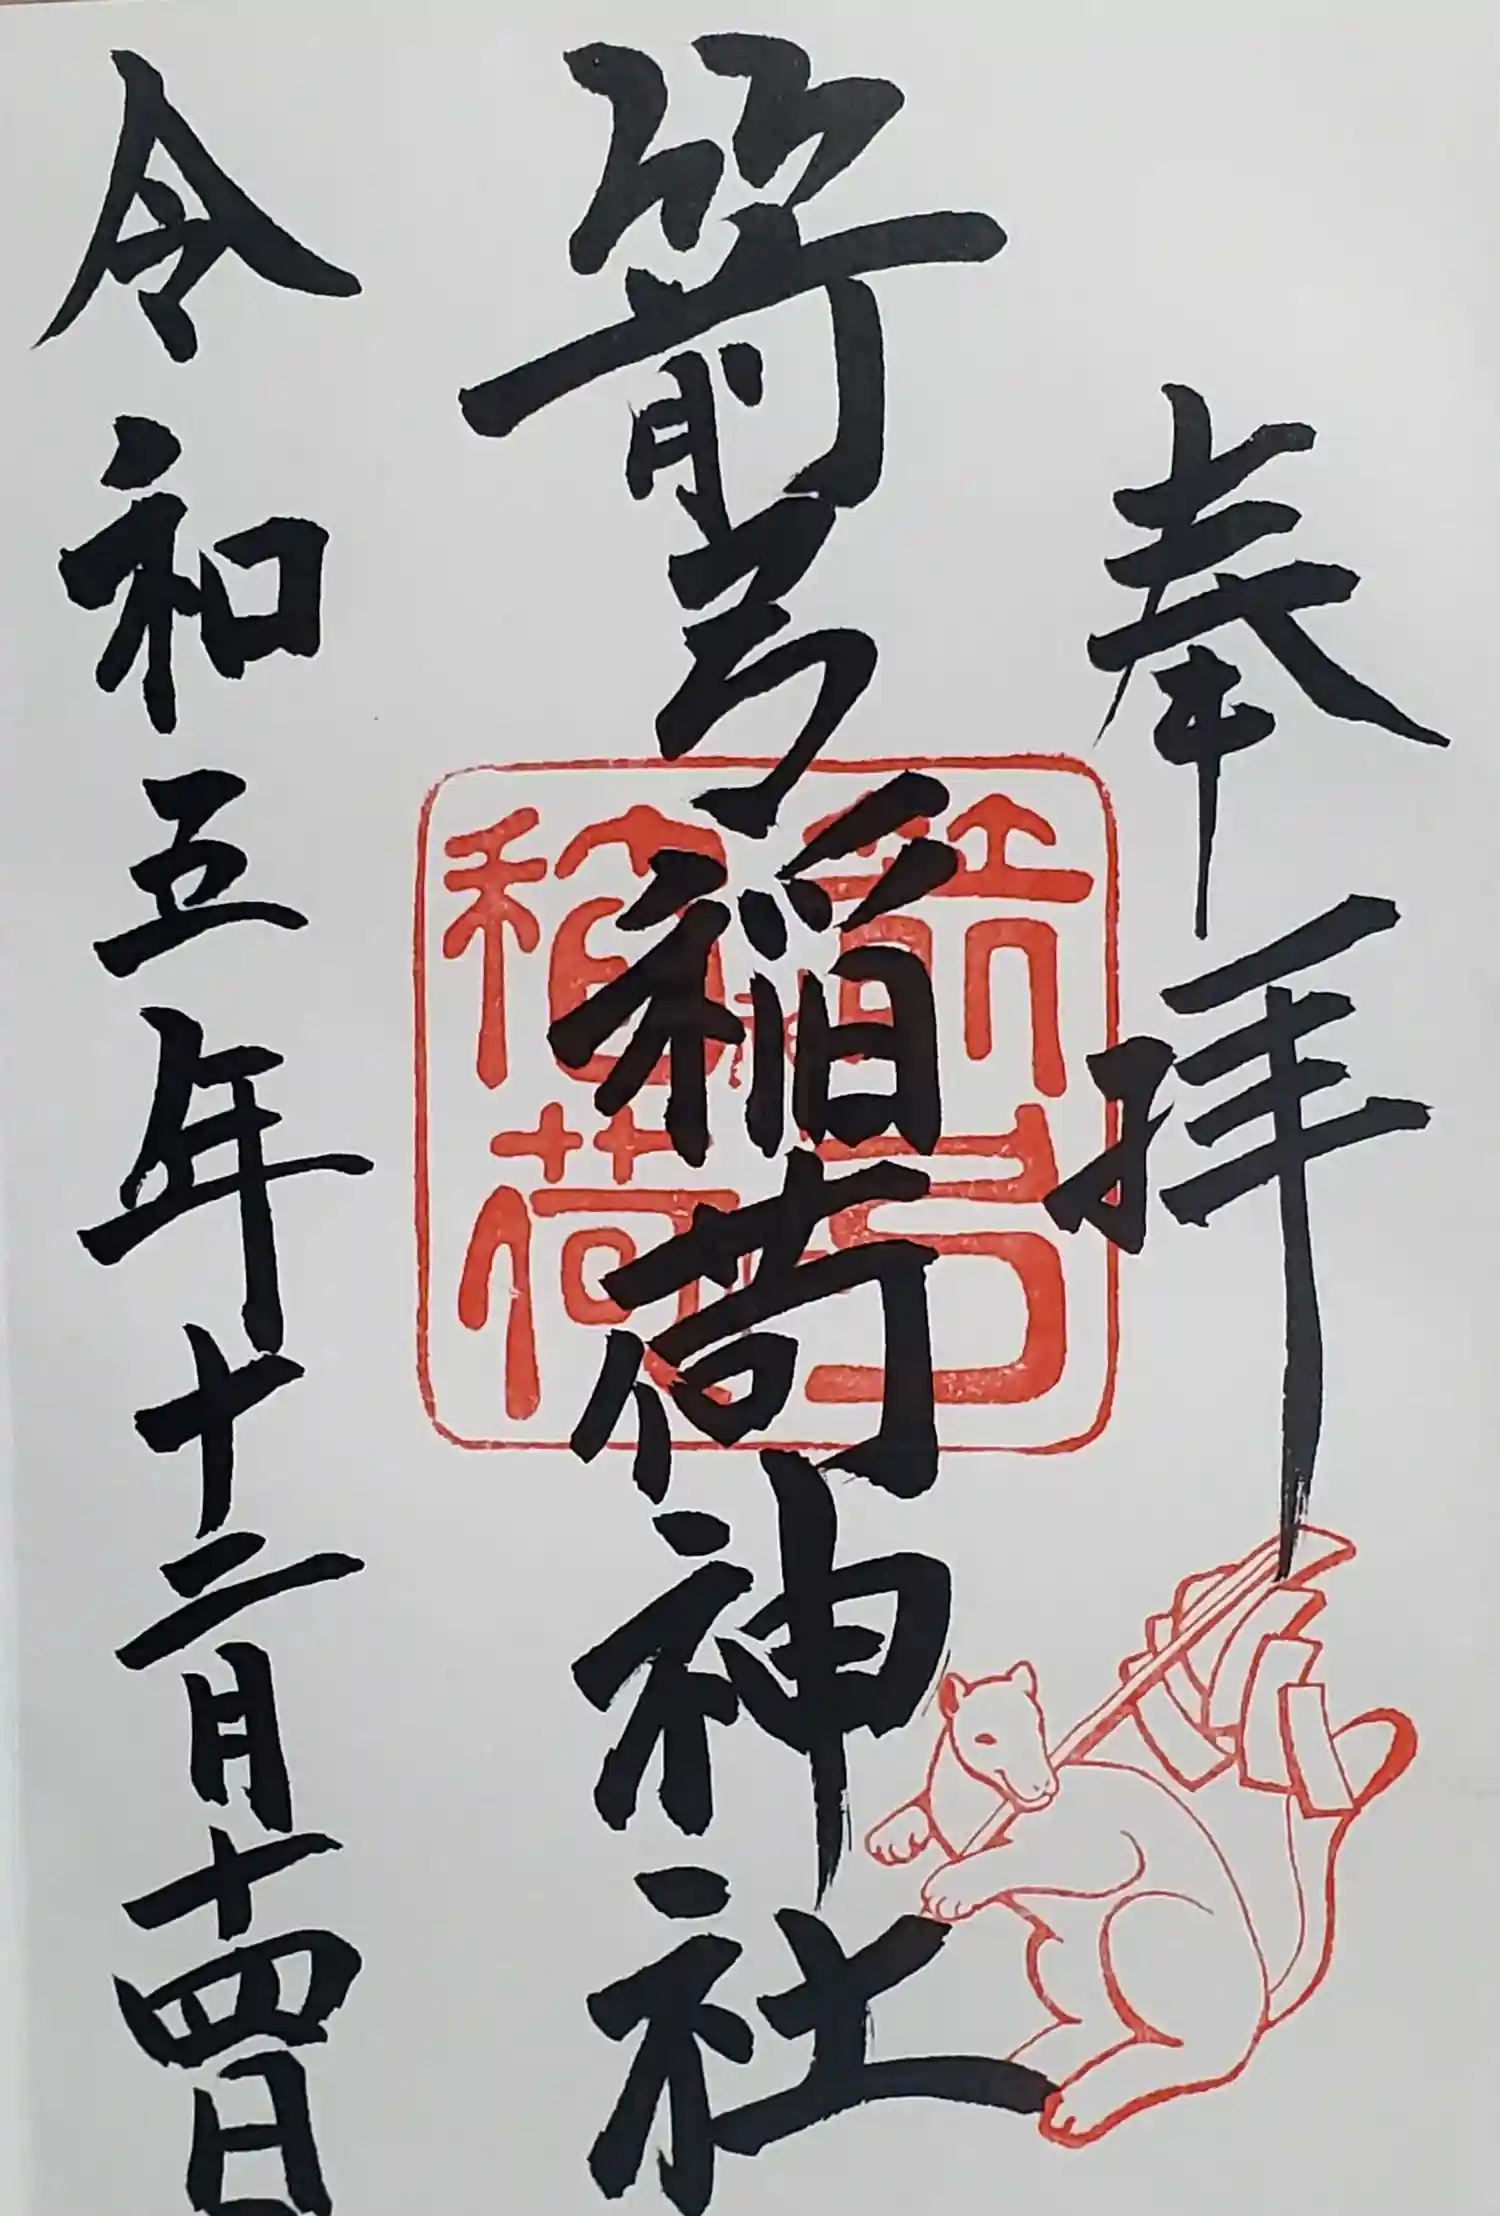 奉拝
箭弓稲荷神社
箭弓
稲荷
令和五年十二月十四日